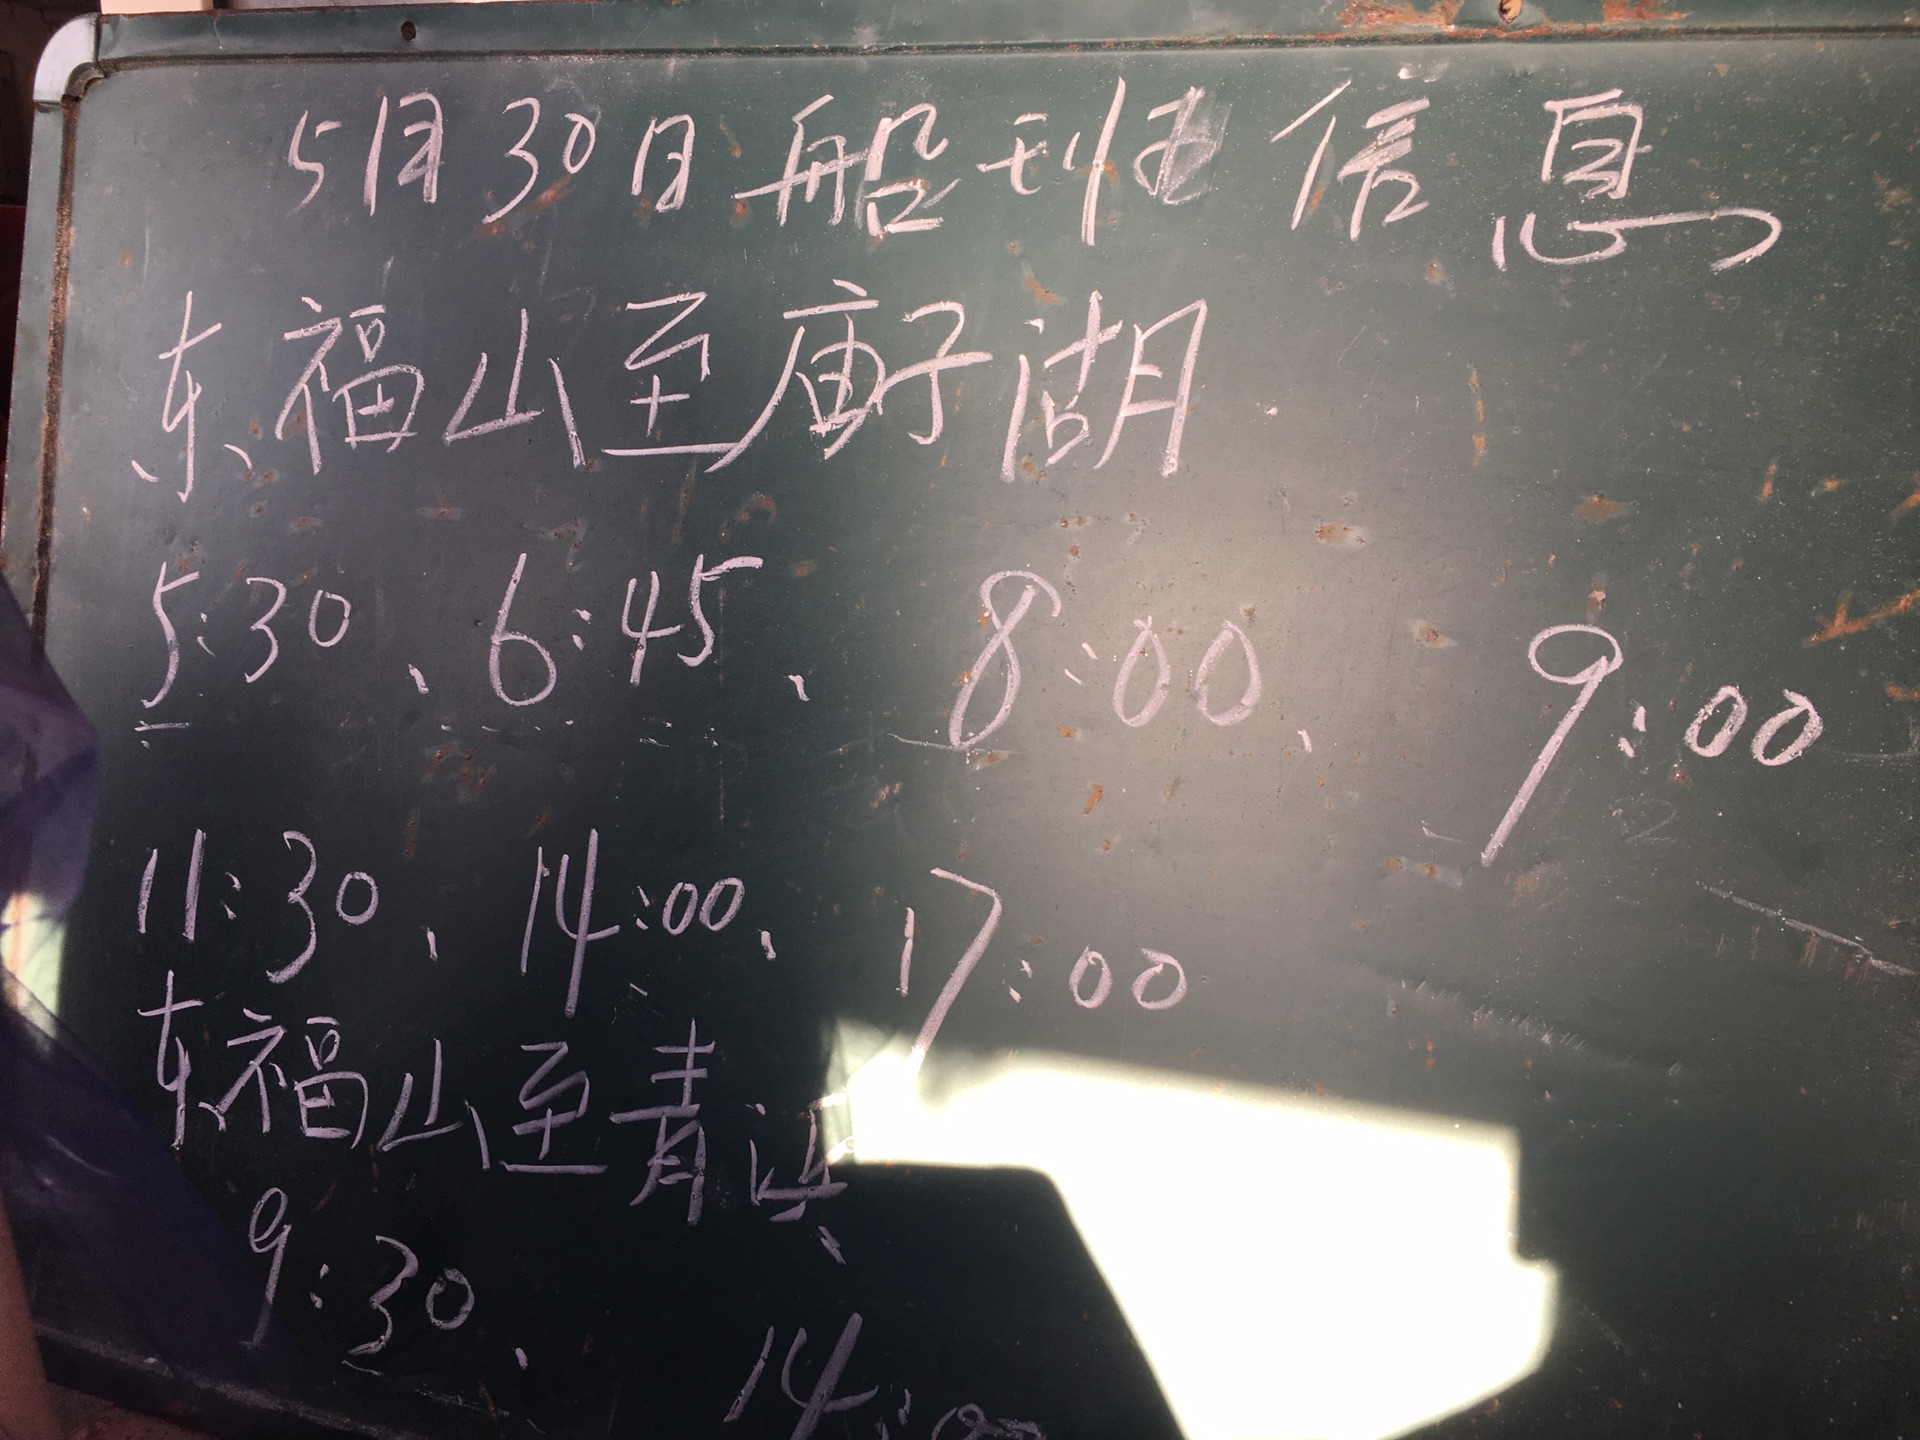 5月30日船班信息
东福山至庙子湖
5:30、6:45、8:00、9:00
11:30、14:00、17:00
东福山至青浜
9:30、14:00